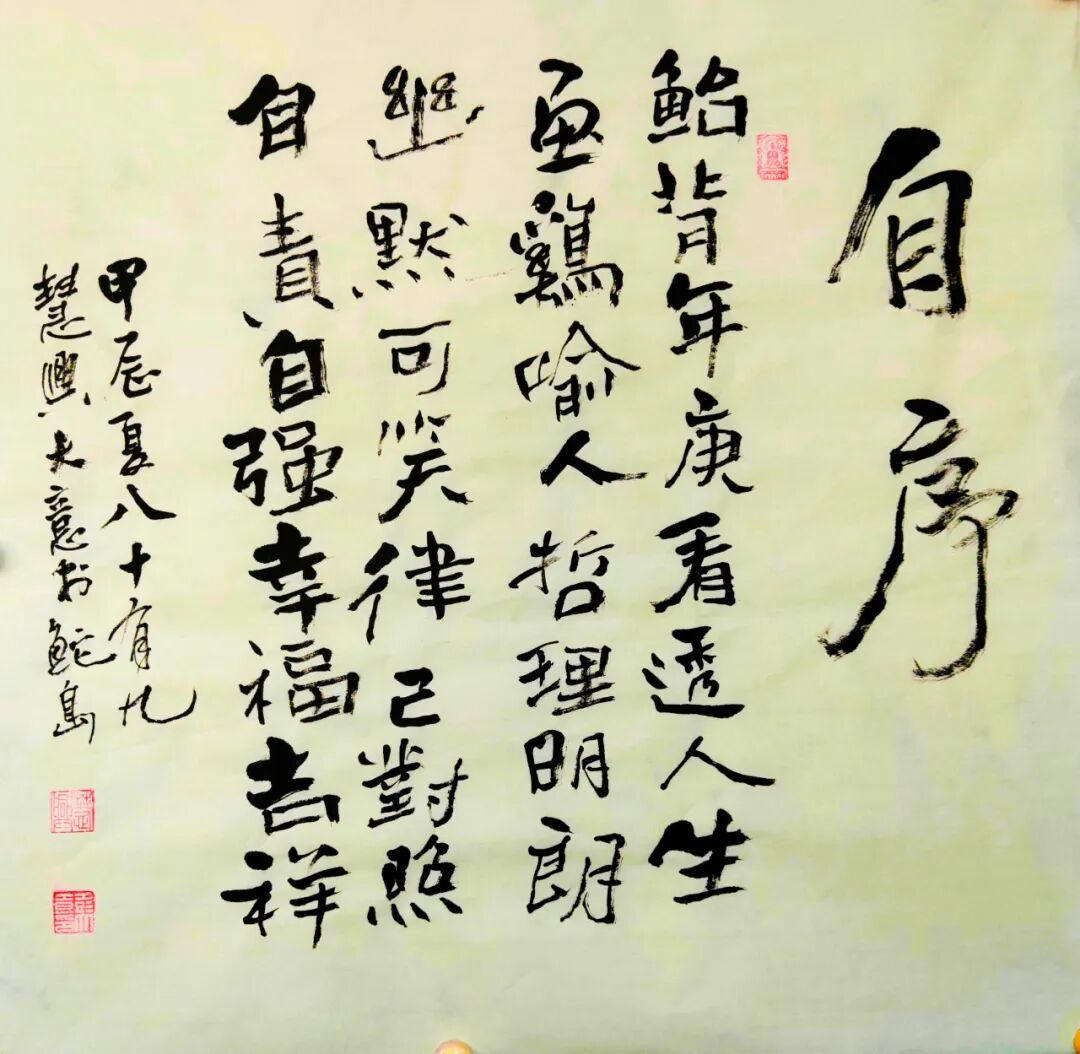 自序
鮐背年庚看透人生
画鷄喻人哲理明朗
幽默可笑律己對照
自責自强幸福吉祥
甲辰夏八十有九
慧興大意於鮀島